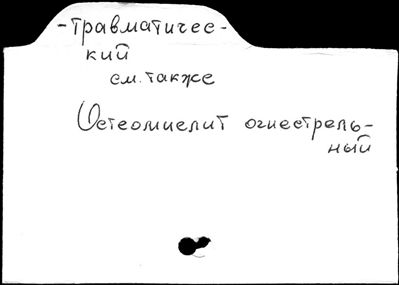 -травматичес-
кий
см. также
Остеомиелит огнестрель-
ный